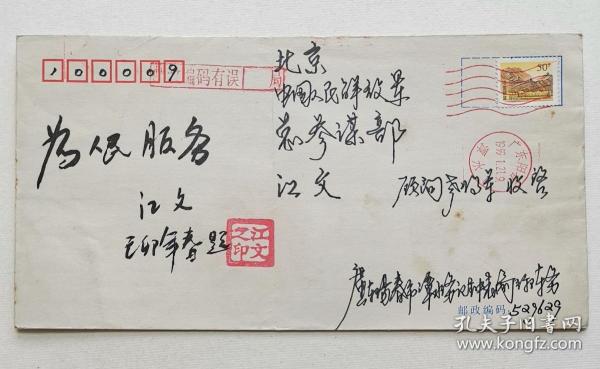 100009
编码有误
局
50分
北京
中国人民解放军
总参谋部
江文 顾问 将军收启
为人民服务
江文
己卯年春题
江文之印
广东阳春
1997.1.21.9
潭水
邮政编码
529629
孔夫子旧书网
kongfz.com